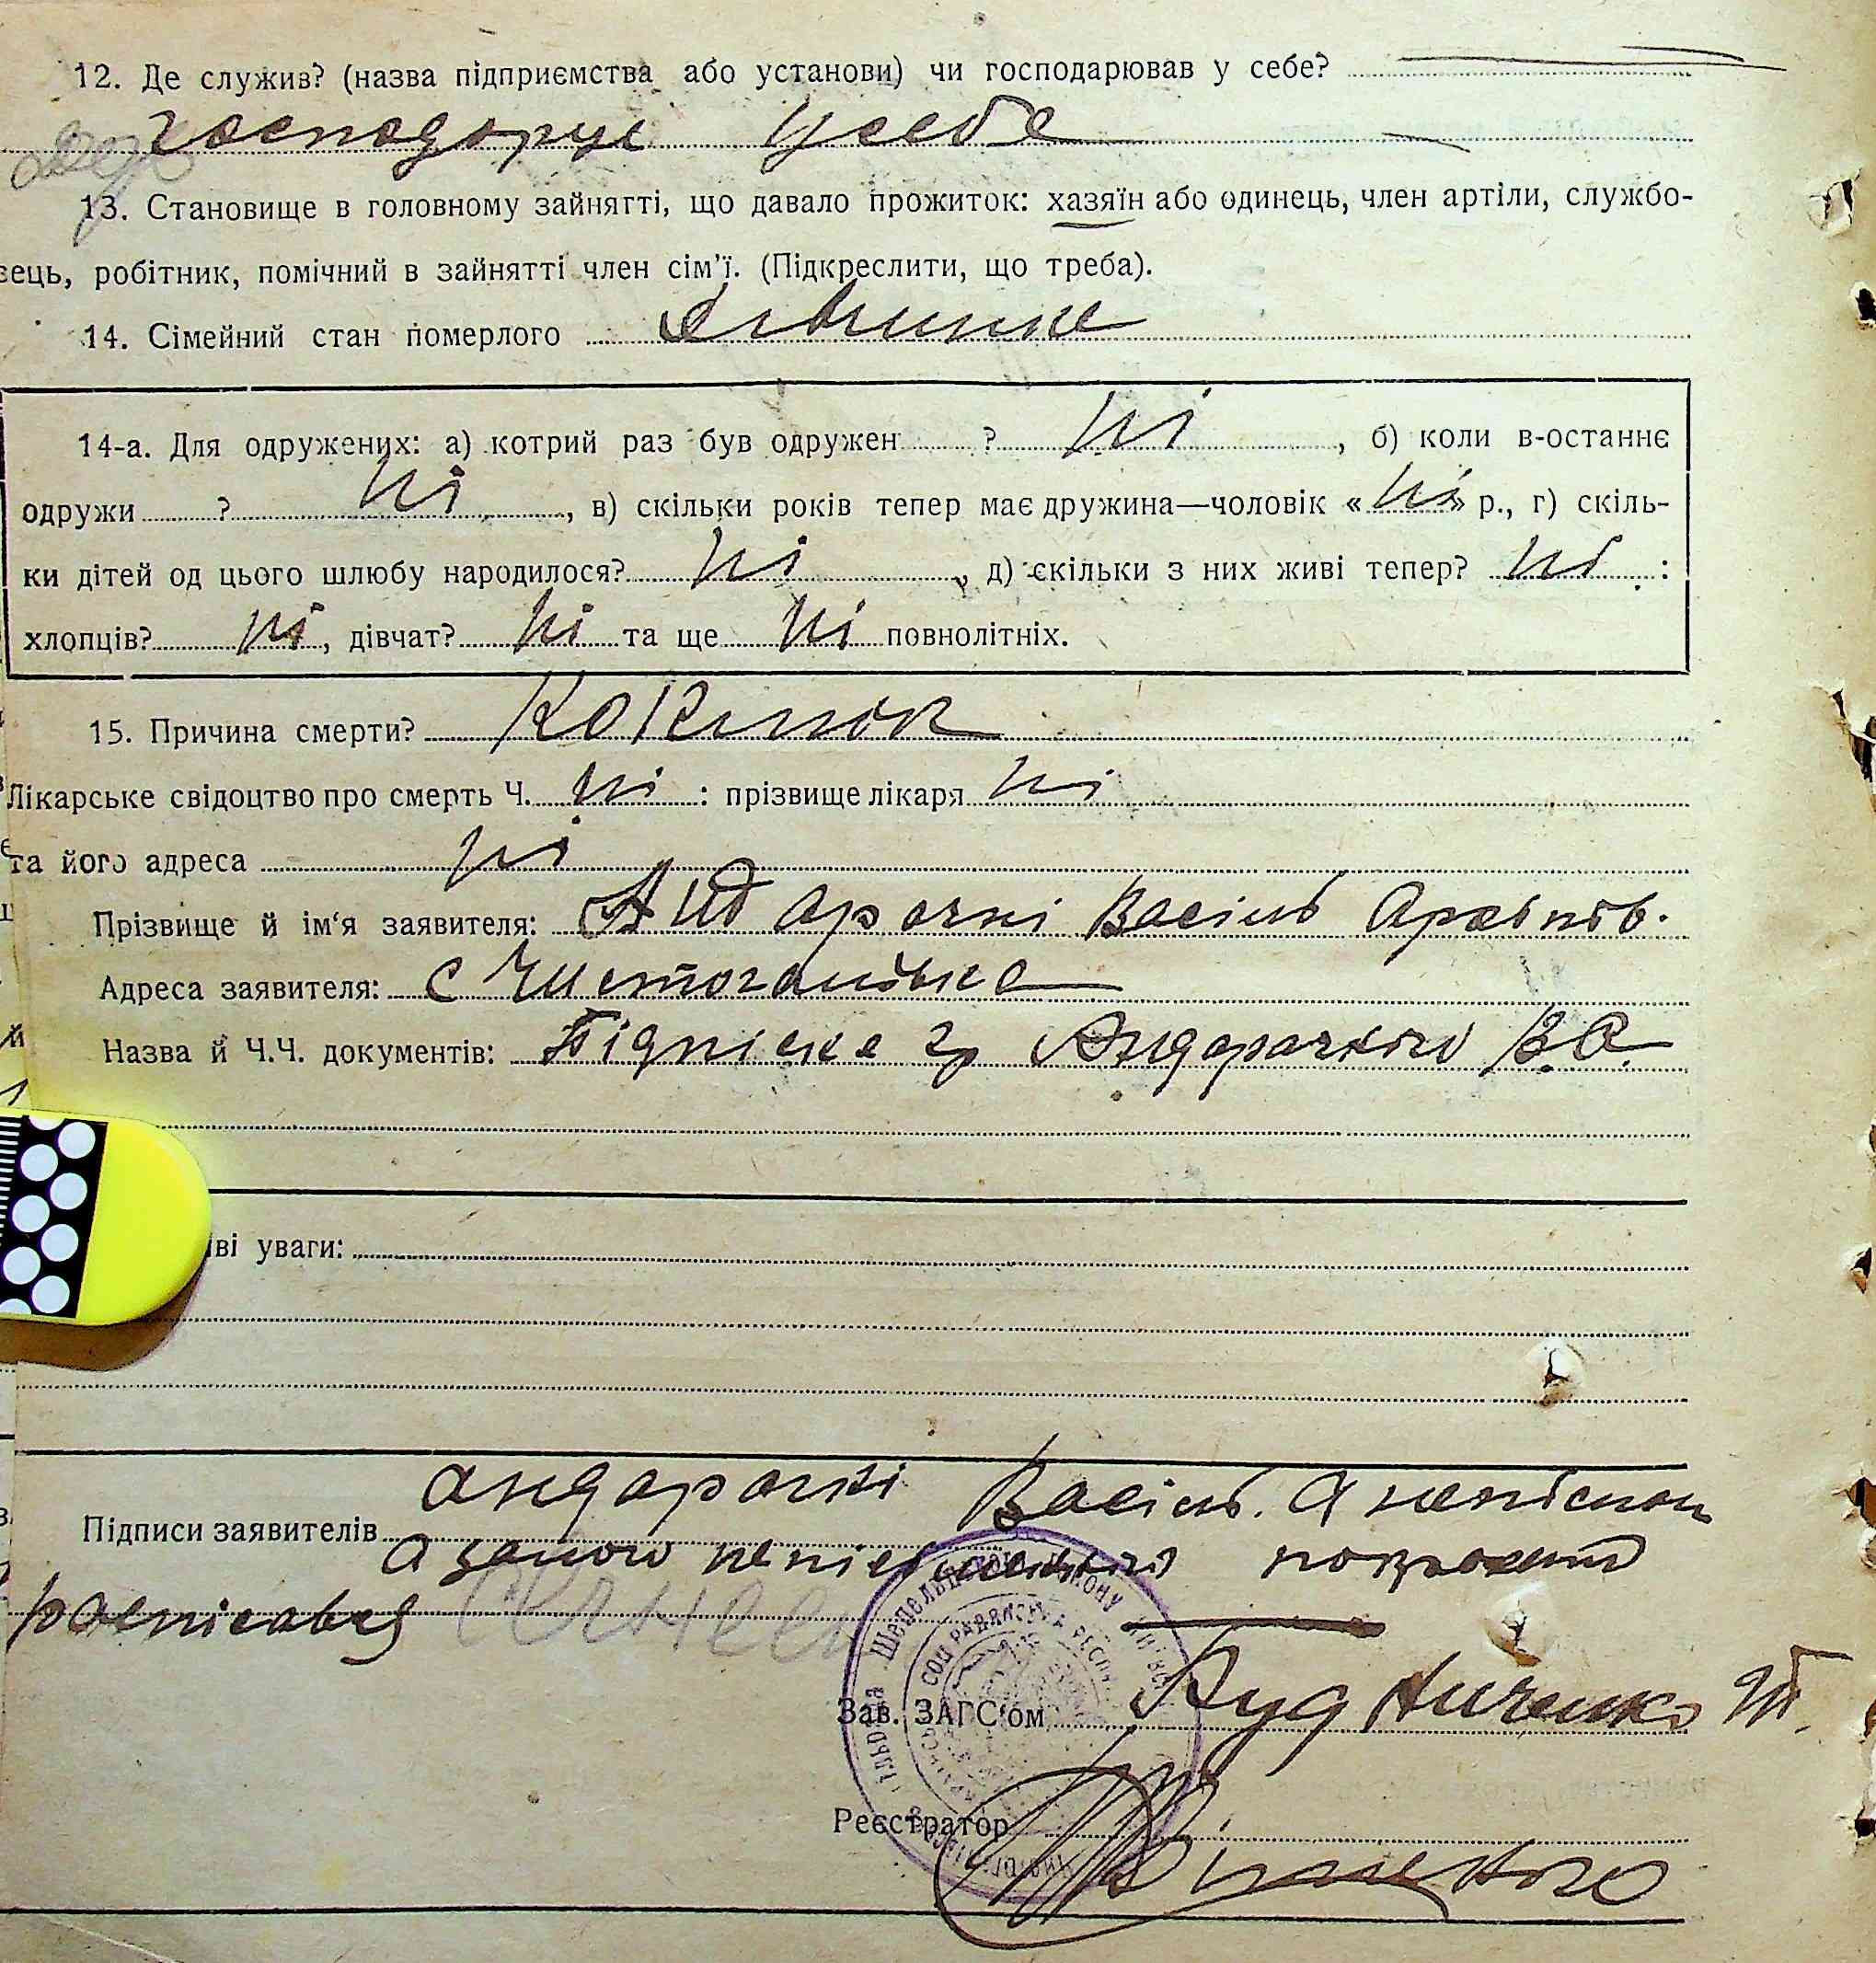 12. Де служив? (назва підприємства або установи) чи господарював у себе?
господорує у себе
13. Становище в головному зайнятті, що давало прожиток: хазяїн або одинець, член артіли, службо-
вець, робітник, помічний в зайнятті член сім’ї. (Підкреслити, що треба).
14. Сімейний стан померлого
14-а. Для одружених: а) котрий раз був одружен ? ні , б) коли в-останнє
одружи ? ні , в) скільки років тепер має дружина—чоловік «ні» р., г) скіль-
ки дітей од цього шлюбу народилося? ні , д) скільки з них живі тепер? ні :
хлопців? ні, дівчат? ні та ще ні повнолітніх.
15. Причина смерти? Коклюш
Лікарське свідоцтво про смерть Ч. ні : прізвище лікаря ні
та його адреса ні
Прізвище й ім‘я заявителя: Андарачкі Васіль
Адреса заявителя: с Чистогалівка
Назва й Ч.Ч. документів: Підпіска гр Андарачкого В.А.
ві уваги:
андарачкі Васіль. А
Підписи заявителів
а заного
роспісався
Зав. ЗАГС‘ом Кудниченко
Реєстратор